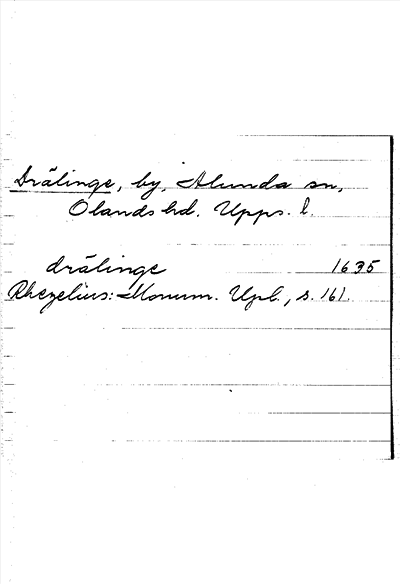 Drälinge, by, Alunda sn,
Olands hd. Upps. l.
drälinge 1635
Rhezelius: Monum. Upl., s. 161.